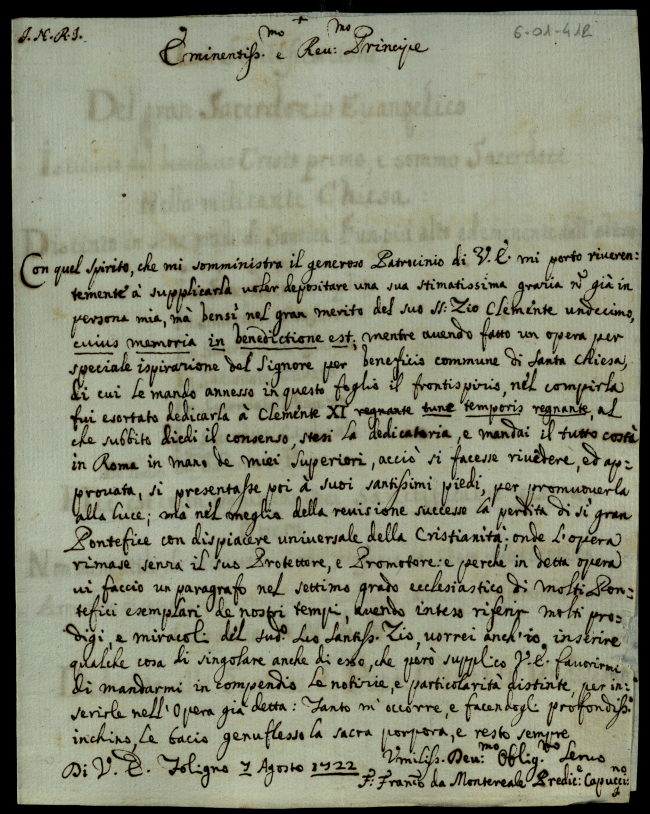 J. N. R. J.
+
6-01-412
Eminentiss.mo e Reu:mo Principe
Del gran Sacerdozio Euangelico
Cristo primo, e sommo Sacerdote
Nella militante Chiesa
Con quel spirito, che mi somministra il generoso Patrocinio di V. E. mi porto riueren:
temente à supplicarla uoler depositare una sua stimatissima grazia nō già in
persona mia, mà bensì nel gran merito del suo SS: Zio Clemente undecimo,
cuius memoria in benedictione est; mentre auendo fatto un opera per
speciale ispirazione del Signore per beneficio commune di Santa Chiesa,
di cui le mando annesso in questo foglio il frontispizio, nel compirla
fui esortato dedicarla à Clemente XI regnante tunc temporis regnante, al
che subbito diedi il consenso, stesi la dedicatoria, e mandai il tutto costà
in Roma in mano de miei Superiori, acciò si facesse riuedere, ed ap-
prouata, si presentasse poi à suoi santissimi piedi, per promuouerla
alla luce; mà nel meglio della reuisione successe la perdita di sì gran
Pontefice con dispiacere uniuersale della Cristianità; onde l'opera
rimase senza il suo Protettore, e Promotore: e perche in detta opera
ui faccio un paragrafo nel settimo grado ecclesiastico di molti Pon-
tefici esemplari de nostri tempi, auendo inteso riferir molti pro-
digi, e miracoli del sud.o suo Santiss. Zio, uorrei anch'io, inserire
qualche cosa di singolare anche di esso, che però supplico V. E. fauorirmi
di mandarmi in compendio le notizie, e particolarità distinte, per in:
serirle nell'Opera già detta: Tanto m'occorre, e facendogli profondiss.o
inchino, le bacio genuflesso la sacra porpora, e resto sempre
Di V. E. Foligno 7 Agosto 1722
Vmiliss. Deu:mo Oblig.mo Seruo
F. Franc.o da Montereale Predic:e Capucci:no